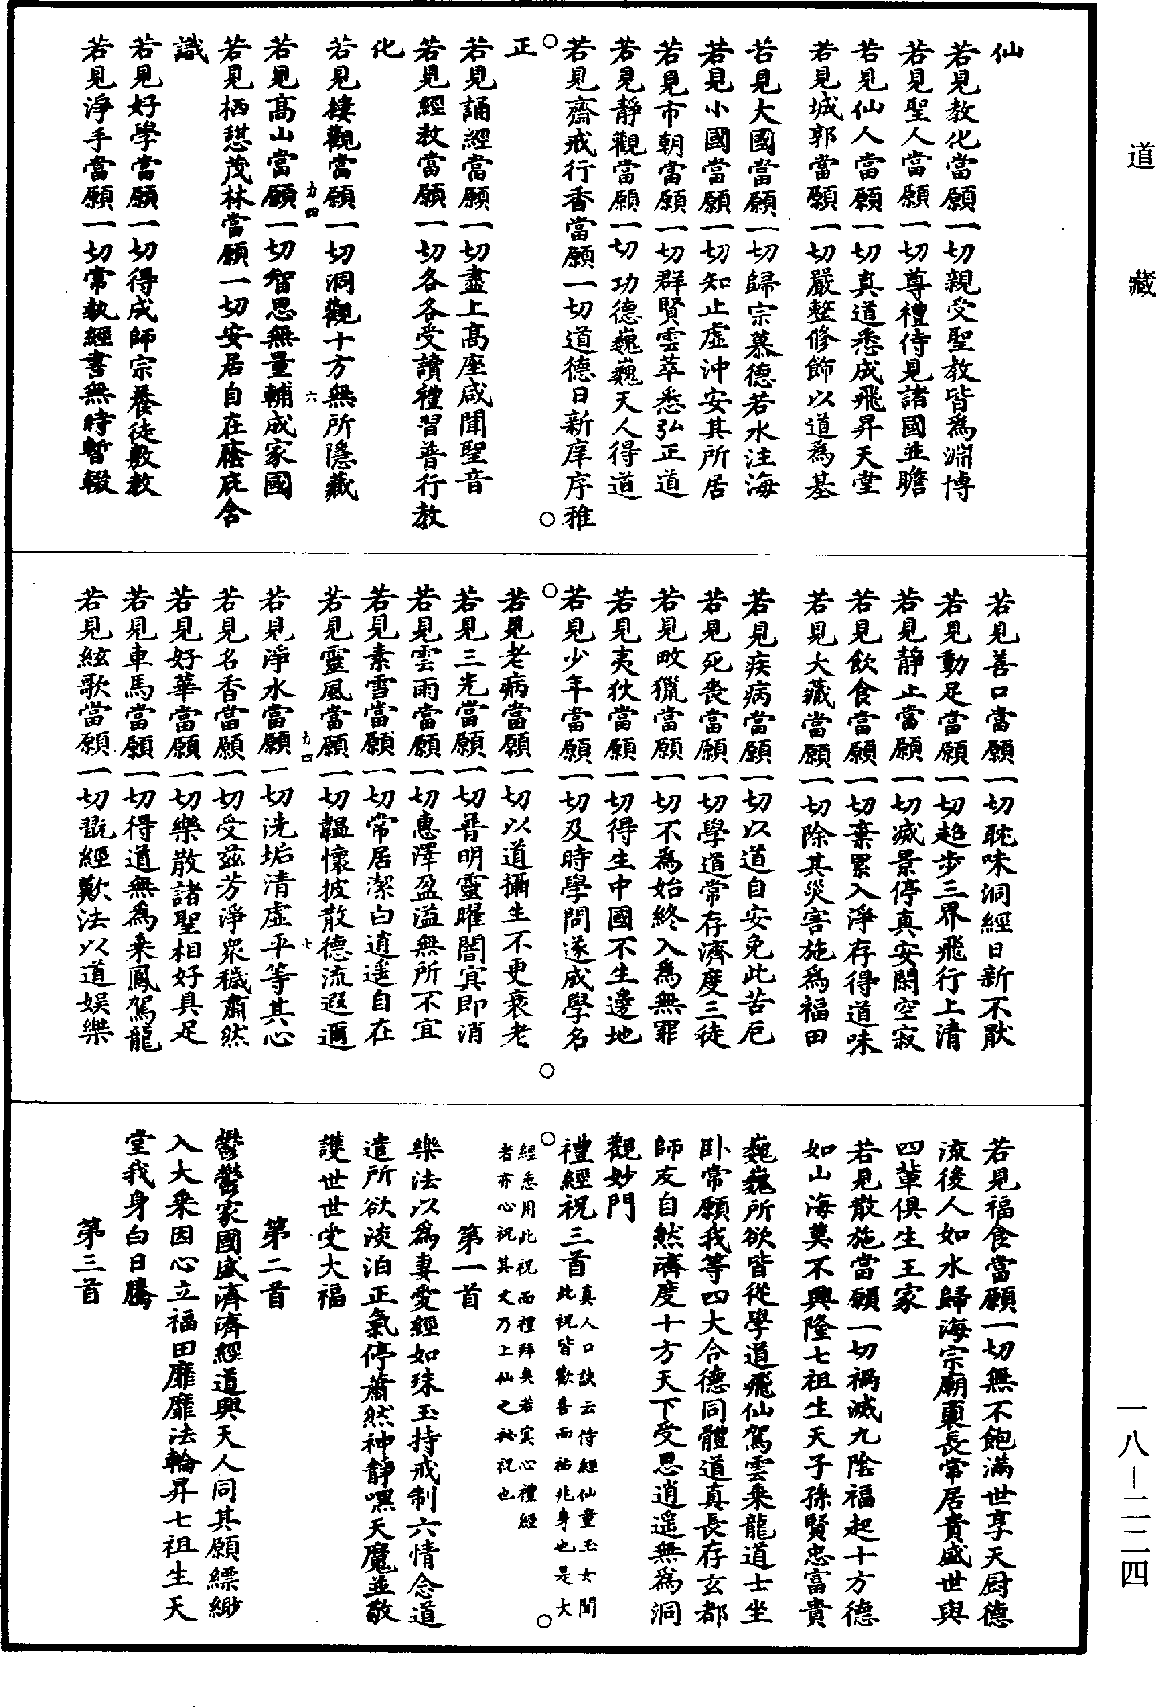 道藏
仙
若見教化當願一切親受聖教皆為淵博
若見聖人當願一切尊禮侍見諸國並瞻
若見仙人當願一切真道悉成飛昇天堂
若見城郭當願一切嚴整修飾以道為基
若見大國當願一切歸宗慕德若水注海
若見小國當願一切知止虛沖安其所居
若見市朝當願一切群賢雲萃悉弘正道
若見靜觀當願一切功德巍巍天人得道
若見齋戒行香當願一切道德日新庠序雅
正
若見誦經當願一切盡上高座咸聞聖音
若見經教當願一切各各受讀禮習普行教
化
若見樓觀當願一切洞觀十方無所隱藏
力四
六
若見高山當願一切智思無量輔成家國
若見栖憩茂林當願一切安居自在蔭庇含
識
若見好學當願一切得成師宗養徒敷教
若見淨手當願一切常執經書無時暫輟
若見善口當願一切耽味洞經日新不猒
若見動足當願一切趍步三界飛行上清
若見靜止當願一切滅景停真安閑空寂
若見飲食當願一切棄累入淨存得道味
若見大藏當願一切除其災害施為福田
若見疾病當願一切以道自安免此苦厄
若見死喪當願一切學道常存濟度三徒
若見畋獵當願一切不為始終入為無罪
若見夷狄當願一切得生中國不生邊地
若見少年當願一切及時學問遂成學名
若見老病當願一切以道攝生不更衰老
若見三光當願一切普明靈曜闇冥即消
若見雲雨當願一切惠澤盈溢無所不宜
若見素雪當願一切常居潔白逍遥自在
力四
七
若見靈風當願一切韞懷披散德流遐邇
若見淨水當願一切洗垢清虛平等其心
若見名香當願一切受茲芳淨眾穢肅然
若見好華當願一切樂散諸聖相好具足
若見車馬當願一切得道無為乘鳳駕龍
若見絃歌當願一切翫經歎法以道娛樂
若見福食當願一切無不飽滿世享天厨德
流後人如水歸海宗廟稟長常居貴盛世與
四輩俱生王家
若見散施當願一切禍滅九陰福起十方德
如山海莫不興隆七祖生天子孫賢忠富貴
巍巍所欲皆從學道飛仙駕雲乘龍道士坐
卧常願我等四大合德同體道真長存玄都
師友自然濟度十方天下受恩逍遥無為洞
觀妙門
禮經祝三首
真人口訣云侍經仙童玉女聞
此祝皆歡喜而祐兆身也是大
經悉用此祝而禮拜矣若冥心禮經
者亦心祝其文乃上仙之祕祝也
第一首
樂法以為妻愛經如珠玉持戒制六情念道
遣所欲淡泊正氣停蕭然神靜嘿天魔並敬
護世世受大福
第二首
鬱鬱家國盛濟濟經道興天人同其願縹緲
入大乘因心立福田靡靡法輪昇七祖生天
堂我身白日騰
第三首
一八－二二四